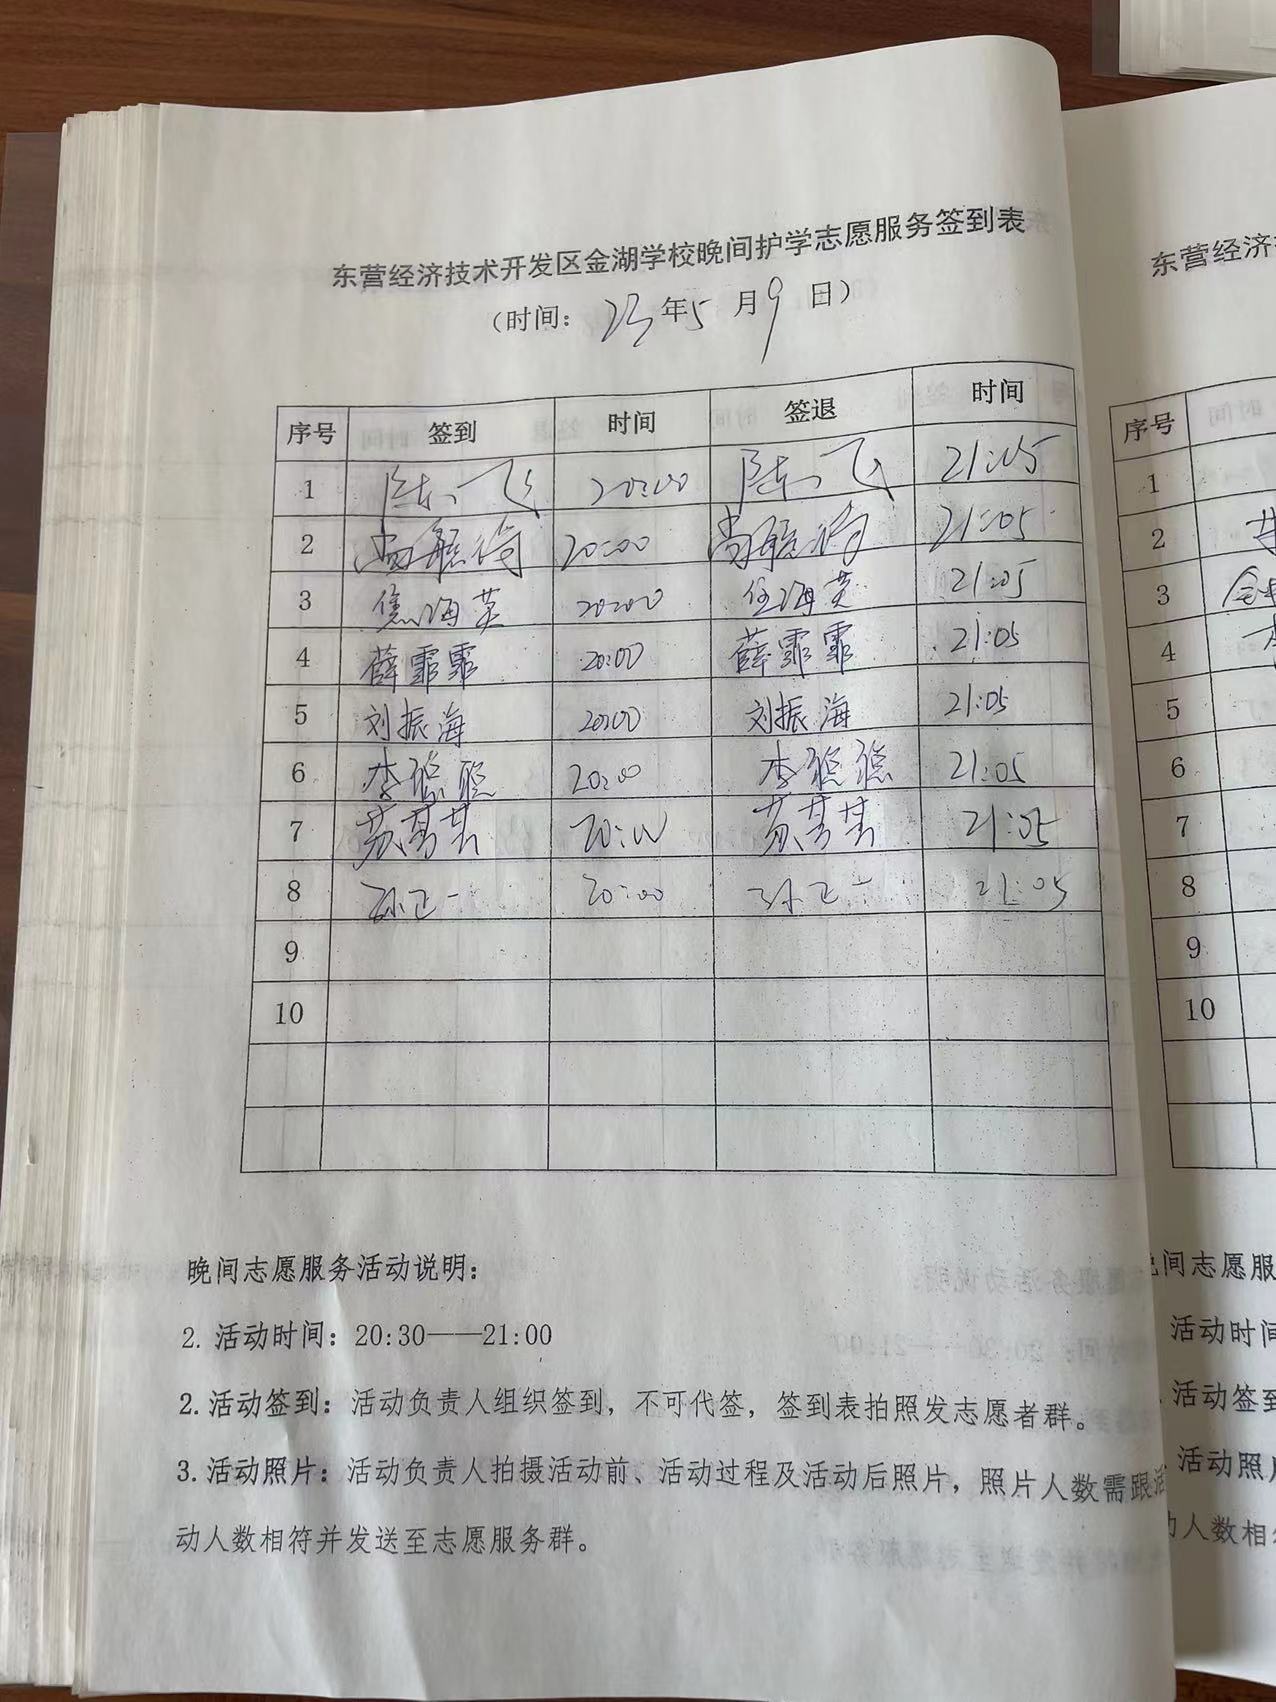 东营经济技术开发区金湖学校晚间护学志愿服务签到表
（时间：23年5月9日）
序号 签到 时间 签退 时间
1 陈飞 20:00 陈飞 21:05
2 尚 20:00 尚 21:05
3 焦海英 20:00 焦海英 21:05
4 薛霏霏 20:00 薛霏霏 21:05
5 刘振海 20:00 刘振海 21:05
6 李聪聪 20:00 李聪聪 21:05
7 20:00 21:05
8 孙正一 20:00 孙正一 21:05
9
10
晚间志愿服务活动说明：
2. 活动时间：20:30——21:00
2. 活动签到：活动负责人组织签到，不可代签，签到表拍照发志愿者群。
3. 活动照片：活动负责人拍摄活动前、活动过程及活动后照片，照片人数需跟活
动人数相符并发送至志愿服务群。
东营经济
序号
1
2
3
4
5
6
7
8
9
10
间志愿服
活动时间
活动签到
活动照片
人数相